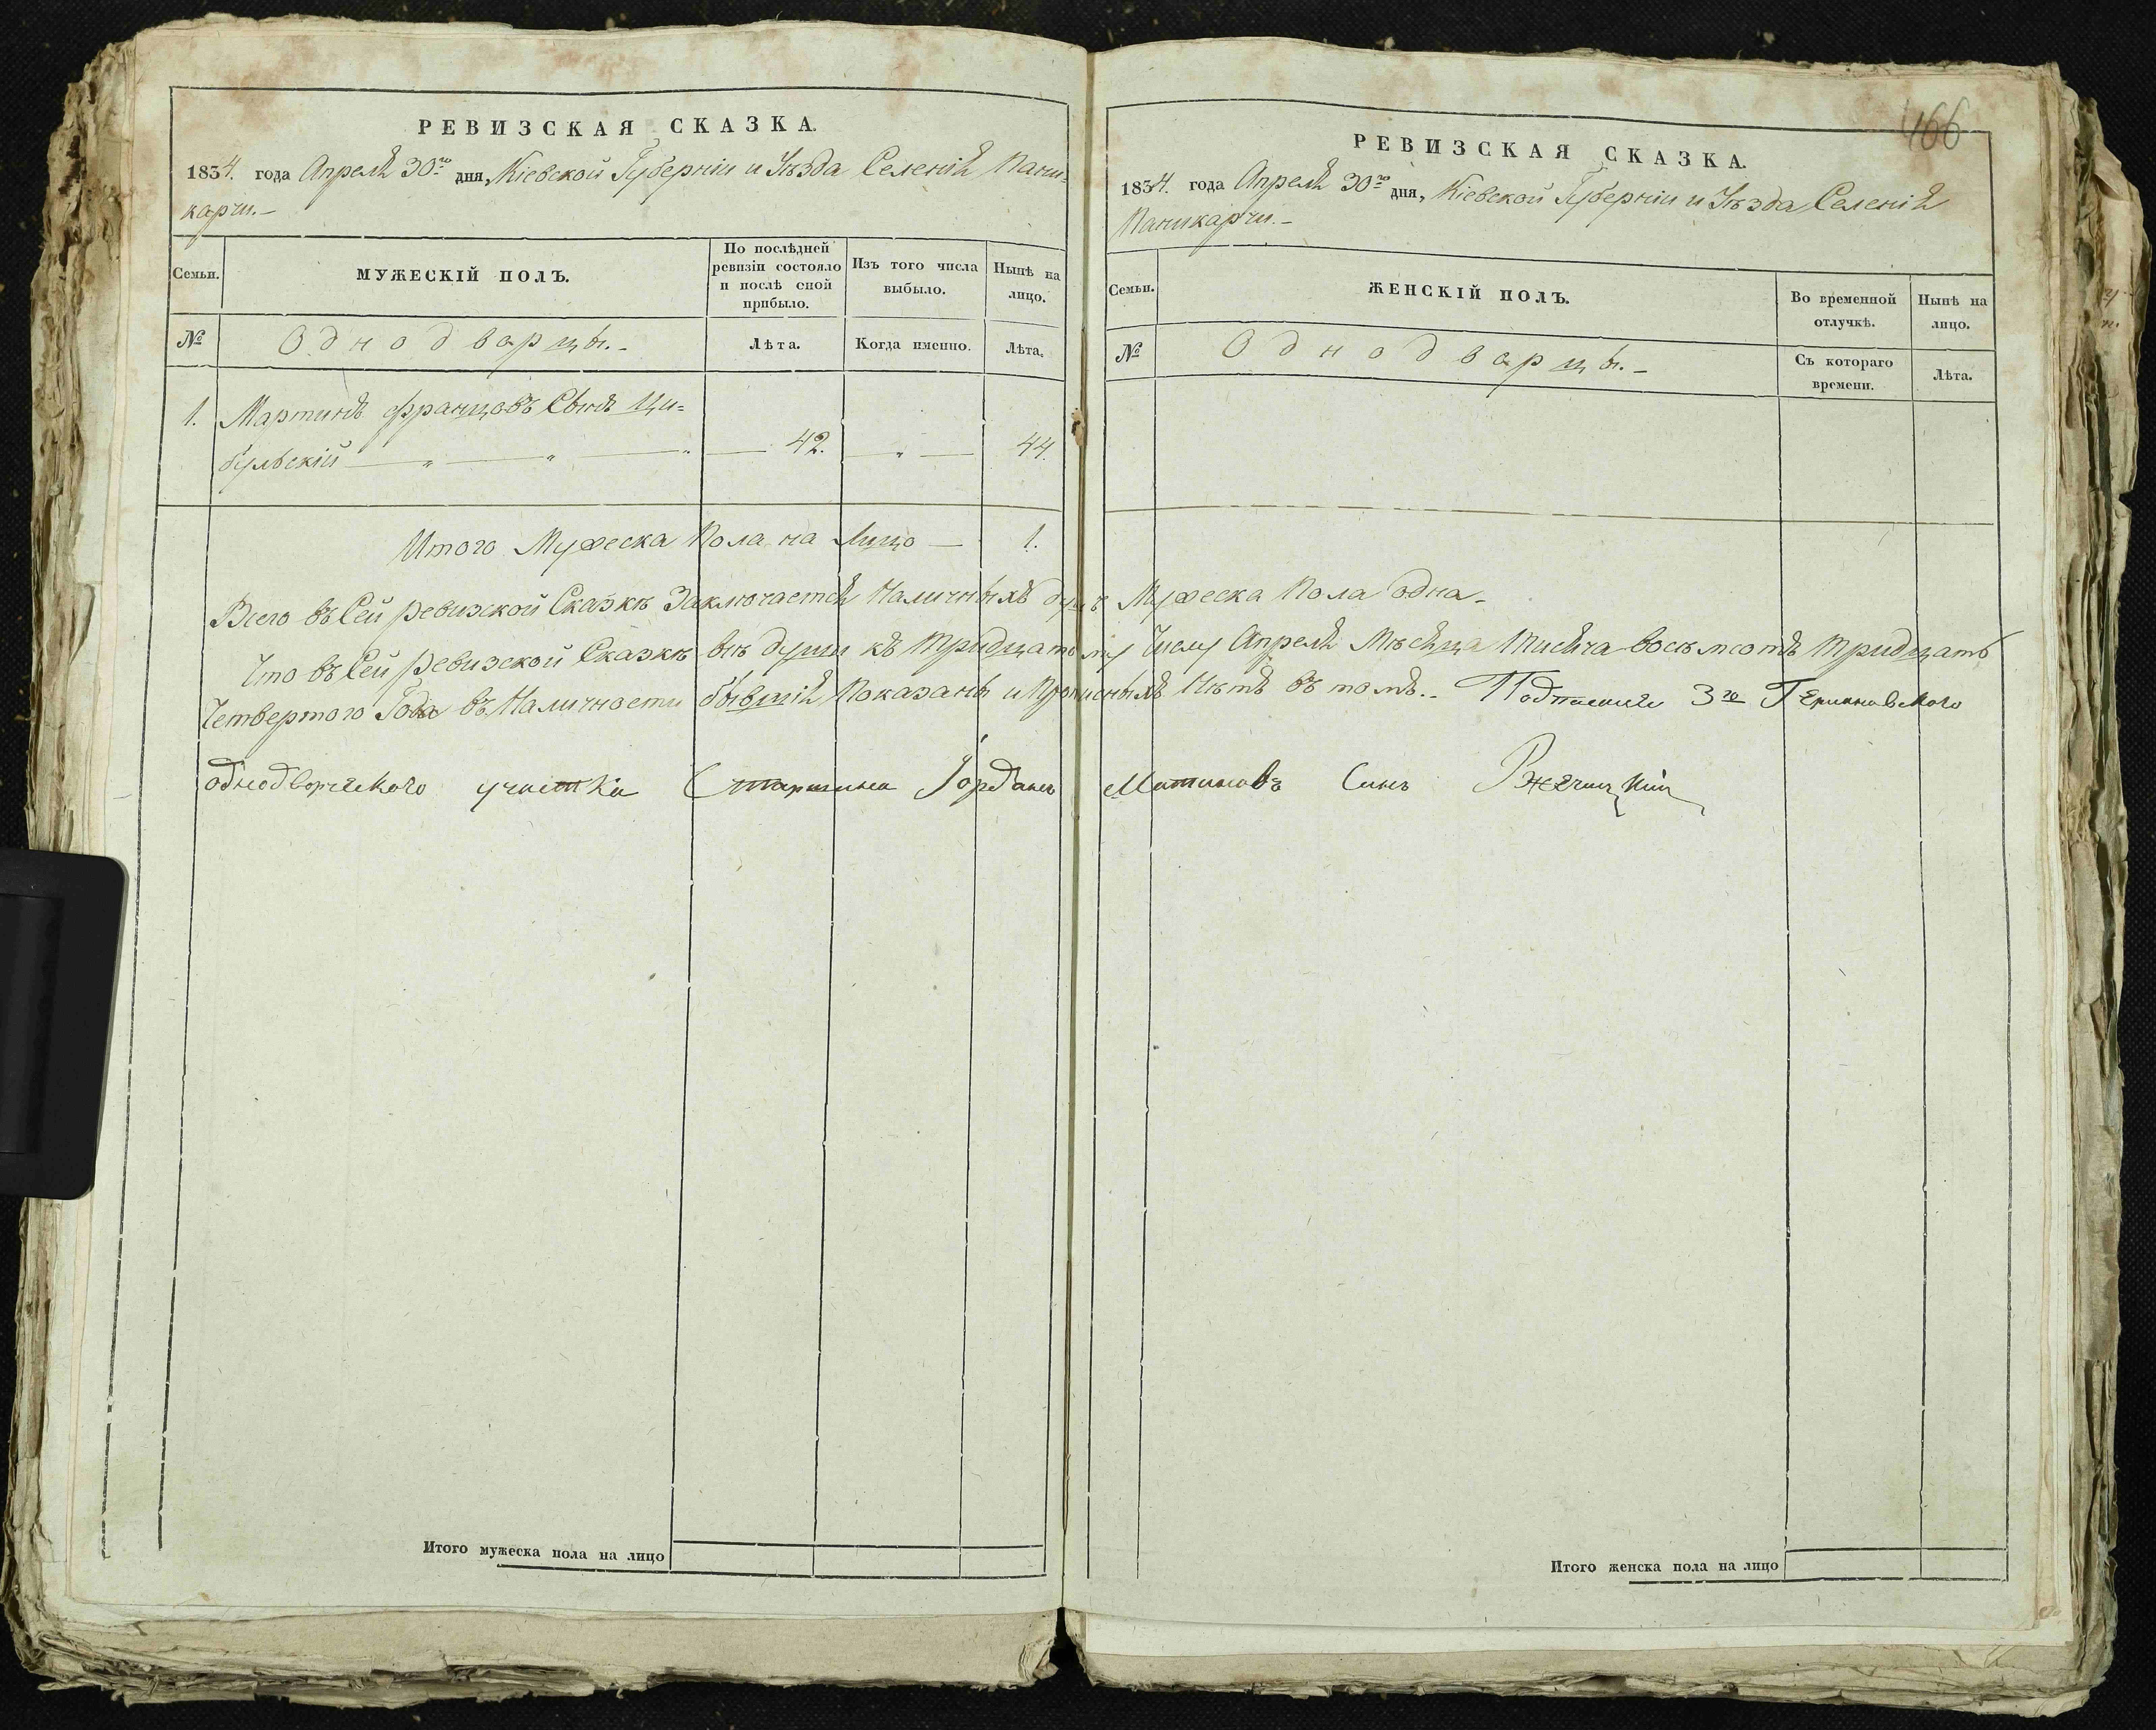 РЕВИЗСКАЯ СКАЗКА.
1834. года Апреля 30го дня, Кіевской Губерніи и Уѣзда Селенія Пани=
карчи.–
Семьи.
МУЖЕСКІЙ ПОЛЪ.
По послѣдней
ревизіи состояло
и послѣ оной
прибыло.
Изъ того числа
выбыло.
Нынѣ на
лицо.
№
Однодварцы.–
Лѣта.
Когда именно.
Лѣта.
1. Мартинъ Францовъ Сынъ Ци=
бульскій — „ — „ — „ — 42. — „ — 44.
Итого Мужеска Пола на Лицо — 1.
466
РЕВИЗСКАЯ СКАЗКА.
1834. года Апреля 30го дня, Кіевской Губерніи и Уѣзда Селенія
Паникарчи.–
Семьи.
ЖЕНСКІЙ ПОЛЪ.
Во временной
отлучкѣ.
Нынѣ на
лицо.
№
Однодварцы.–
Съ котораго
времени.
Лѣта.
Всего въ Сей ревизской Сказкѣ Заключается Наличныхъ душъ Мужеска Пола одна.–
Что въ Сей ревизской Сказкѣ всѣ души къ тридцатому Числу Апреля Мѣсяца тисяча восемсотъ тридцать
Четвертого Года въ Наличности бывшія показаны и прописныхъ Нѣтъ въ томъ.– Подписанъ 3го
однодворческого участка Старшина Іорданъ Матиасовъ Синъ Ржечицкій
Итого мужеска пола на лицо
Итого женска пола на лицо